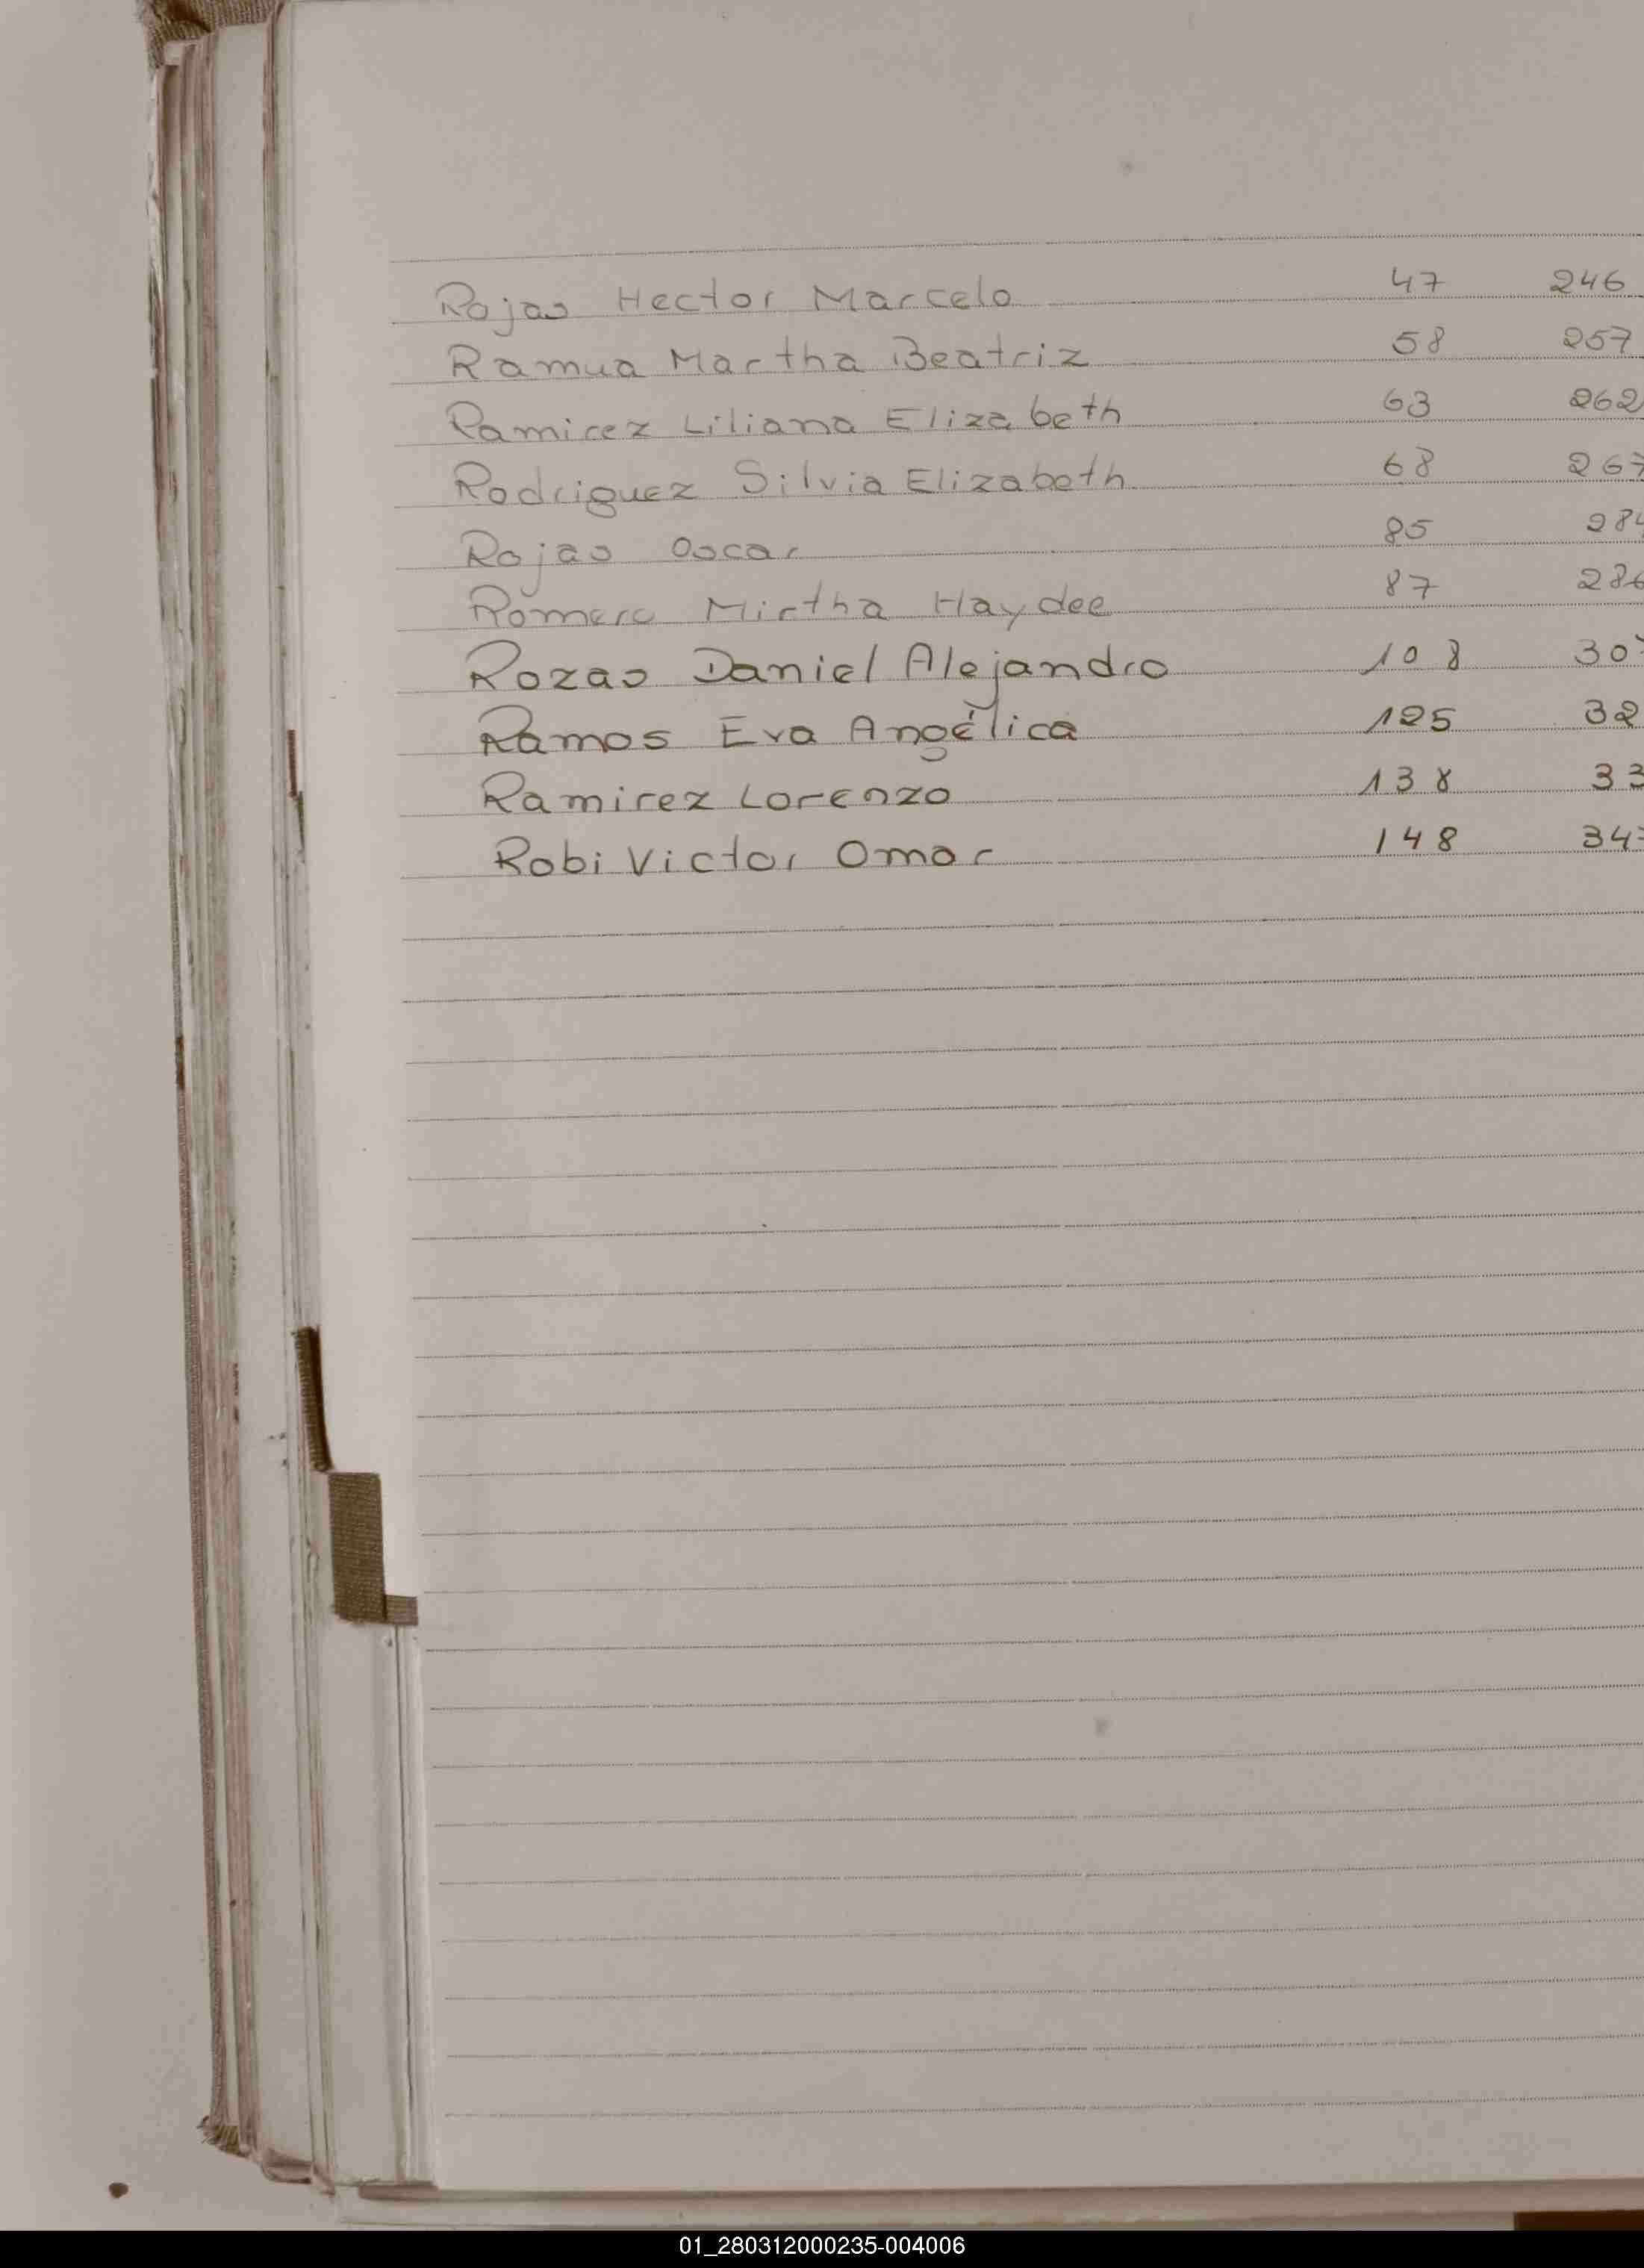 Rojas Hector Marcelo 47 246
Ramua Martha Beatriz 58 257
Ramirez Liliana Elizabeth 63 262
Rodriguez Silvia Elizabeth 68 267
Rojas Oscar 85 284
Romero Mirtha Haydee 87 286
Rozas Daniel Alejandro 108 30
Ramos Eva Angélica 125 32
Ramirez Lorenzo 138 33
Robi Victor Omar 148 34
01_280312000235-004006